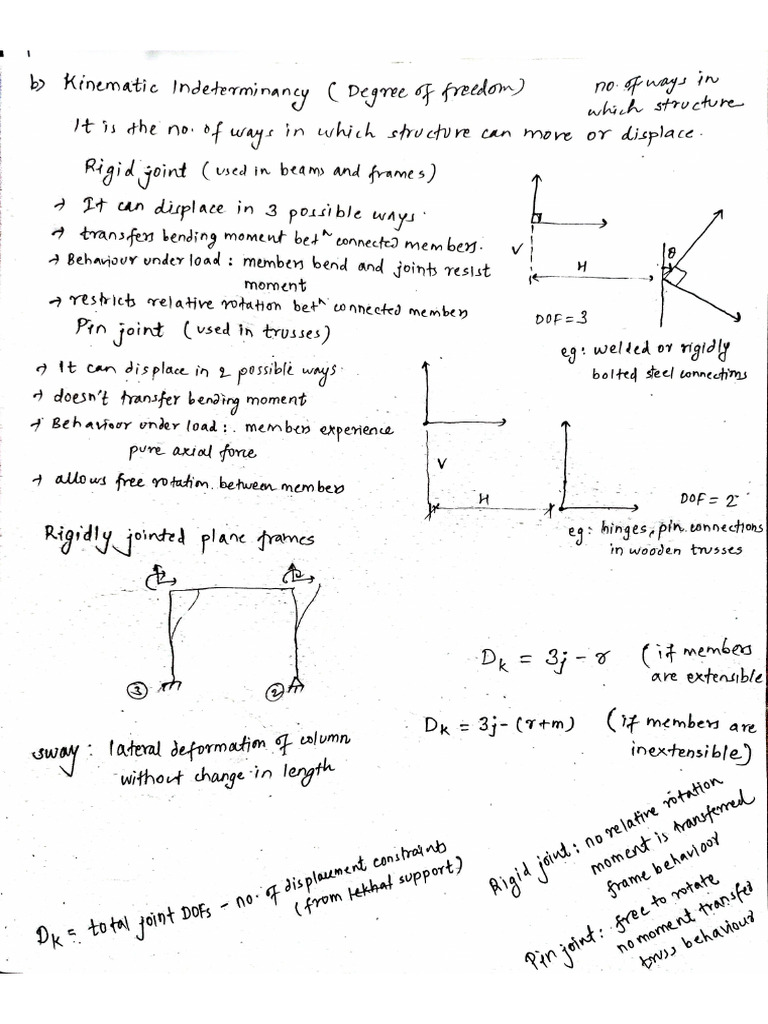 b) Kinematic Indeterminancy ( Degree of freedom)
no. of ways in
which structure
It is the no. of ways in which structure can move or displace.
Rigid joint (used in beams and frames)
→ It can displace in 3 possible ways.
→ transfers bending moment betⁿ connected members.
→ Behaviour under load : members bend and joints resist
moment
→ restricts relative rotation betⁿ connected members
V
H
θ
DOF = 3
eg: welded or rigidly
bolted steel connections
Pin joint (used in trusses)
→ It can displace in 2 possible ways.
→ doesn't transfer bending moment
→ Behaviour under load : members experience
pure axial force
→ allows free rotation between members
V
H
DOF = 2
eg: hinges, pin connections
in wooden trusses
Rigidly jointed plane frames
③ ②
Dk = 3j - r (if members
are extensible
Dk = 3j - (r+m) (if members are
inextensible)
sway : lateral deformation of column
without change in length
Dk = total joint DOFs - no. of displacement constraints
(from support)
Rigid joint : no relative rotation
moment is transferred
frame behaviour
Pin joint : free to rotate
no moment transfer
truss behaviour